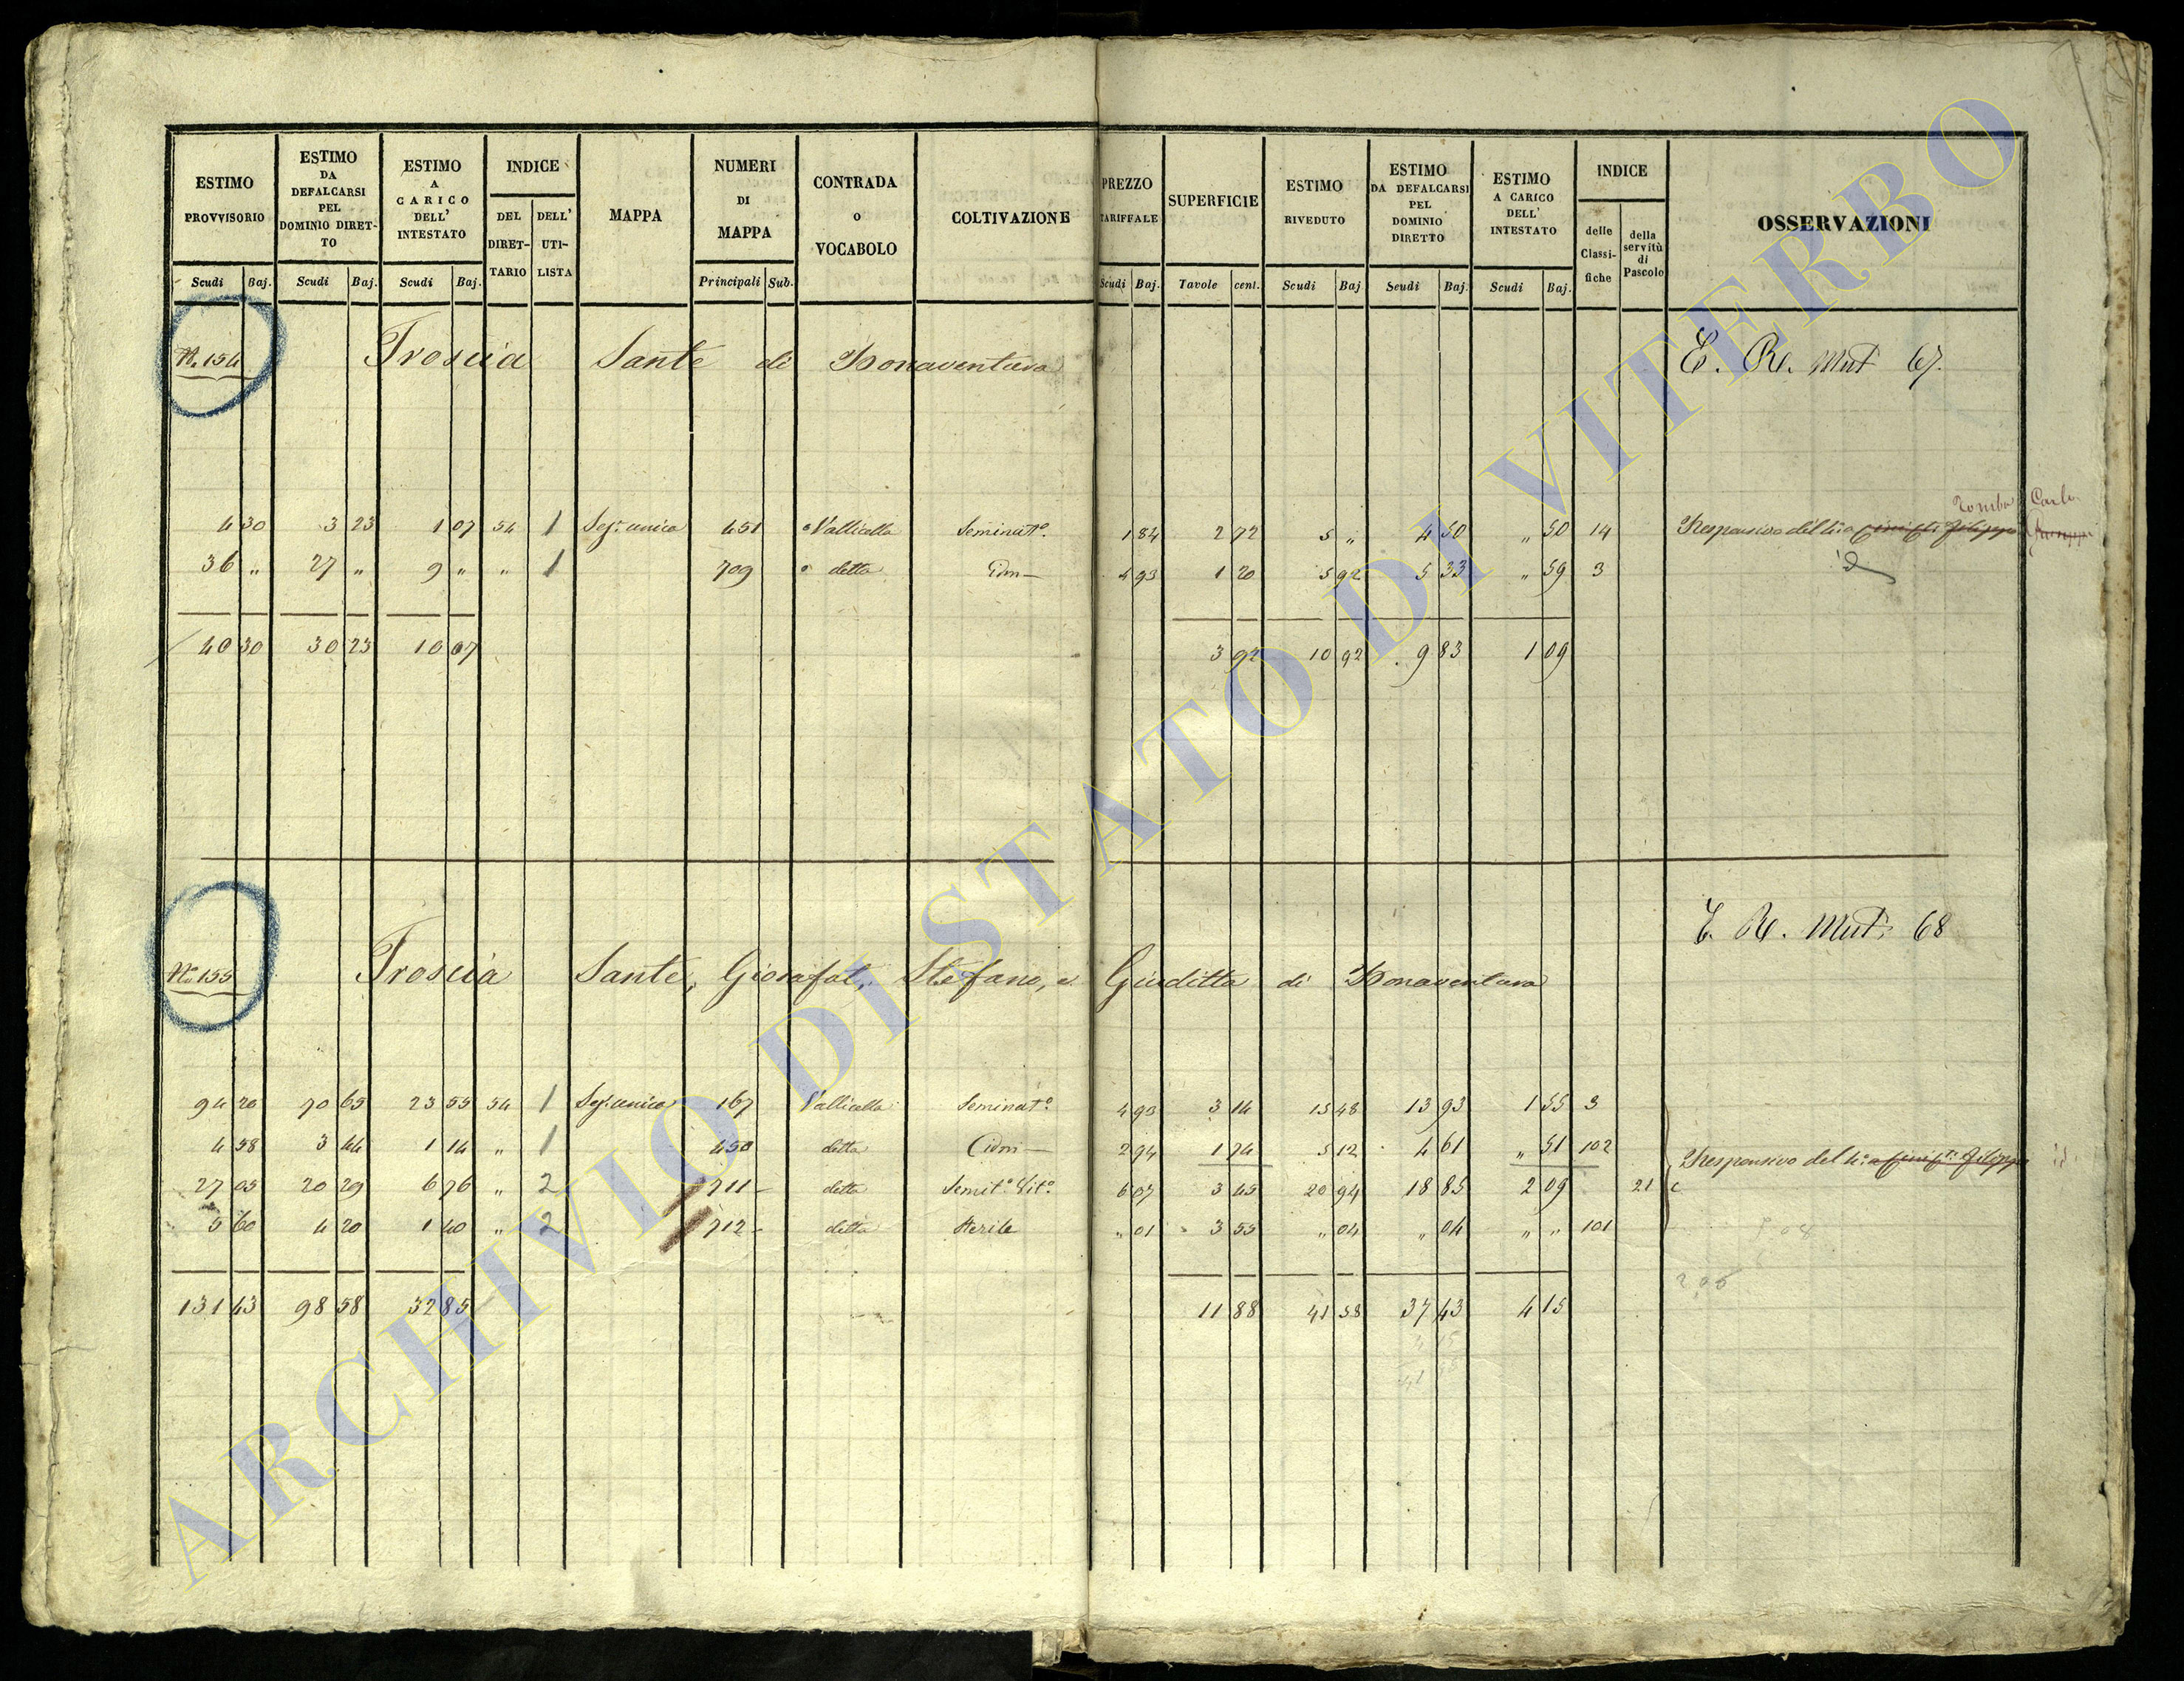 ESTIMO PROVVISORIO | ESTIMO DA DEFALCARSI PEL DOMINIO DIRETTO | ESTIMO A CARICO DELL' INTESTATO | INDICE | MAPPA | NUMERI DI MAPPA | CONTRADA O VOCABOLO | COLTIVAZIONE | PREZZO TARIFFALE | SUPERFICIE | ESTIMO RIVEDUTO | ESTIMO DA DEFALCARSI PEL DOMINIO DIRETTO | ESTIMO A CARICO DELL' INTESTATO | INDICE | OSSERVAZIONI
DEL DIRETTARIO | DELL' UTILISTA | delle Classifiche | della servitù di Pascolo
Scudi | Baj. | Scudi | Baj. | Scudi | Baj. | Principali | Sub. | Scudi | Baj. | Tavole | cent. | Scudi | Baj | Scudi | Baj. | Scudi | Baj.
N. 154 Troscia Sante di Bonaventura E. Re. Mut 67.
Carlo
4 30 | 3 23 | 1 07 | 54 | 1 | Sez. unica | 451 | Vallicella | Seminato. | 1 84 | 2 72 | 5 „ | 4 50 | „ 50 | 14 | Responsivo del
36 „ | 27 „ | 9 „ | „ | 1 | 709 | detta | Idm | 4 93 | 1 20 | 5 92 | 5 33 | „ 59 | 3
40 30 | 30 23 | 10 07 | 3 92 | 10 92 | 9 83 | 1 09
E. Re. Mut. 68
N. 155 Troscia Sante, Giosafat, Stefano, e Giuditta di Bonaventura
94 20 | 70 65 | 23 55 | 54 | 1 | Sez. unica | 167 | Vallicella | Seminato. | 4 93 | 3 14 | 15 48 | 13 93 | 1 55 | 3
4 58 | 3 44 | 1 14 | „ | 1 | 450 | detta | Idm | 2 94 | 1 74 | 5 12 | 4 61 | „ 51 | 102 | Responsivo del
27 05 | 20 29 | 6 76 | „ | 2 | 711 | detta | Semito. Vito. | 6 07 | 3 45 | 20 94 | 18 85 | 2 09 | 21
5 60 | 4 20 | 1 40 | „ | 2 | 712 | detta | Sterile | „ 01 | 3 55 | „ 04 | „ 04 | „ „ | 101
131 43 | 98 58 | 32 85 | 11 88 | 41 58 | 37 43 | 4 15
ARCHIVIO DI STATO DI VITERBO